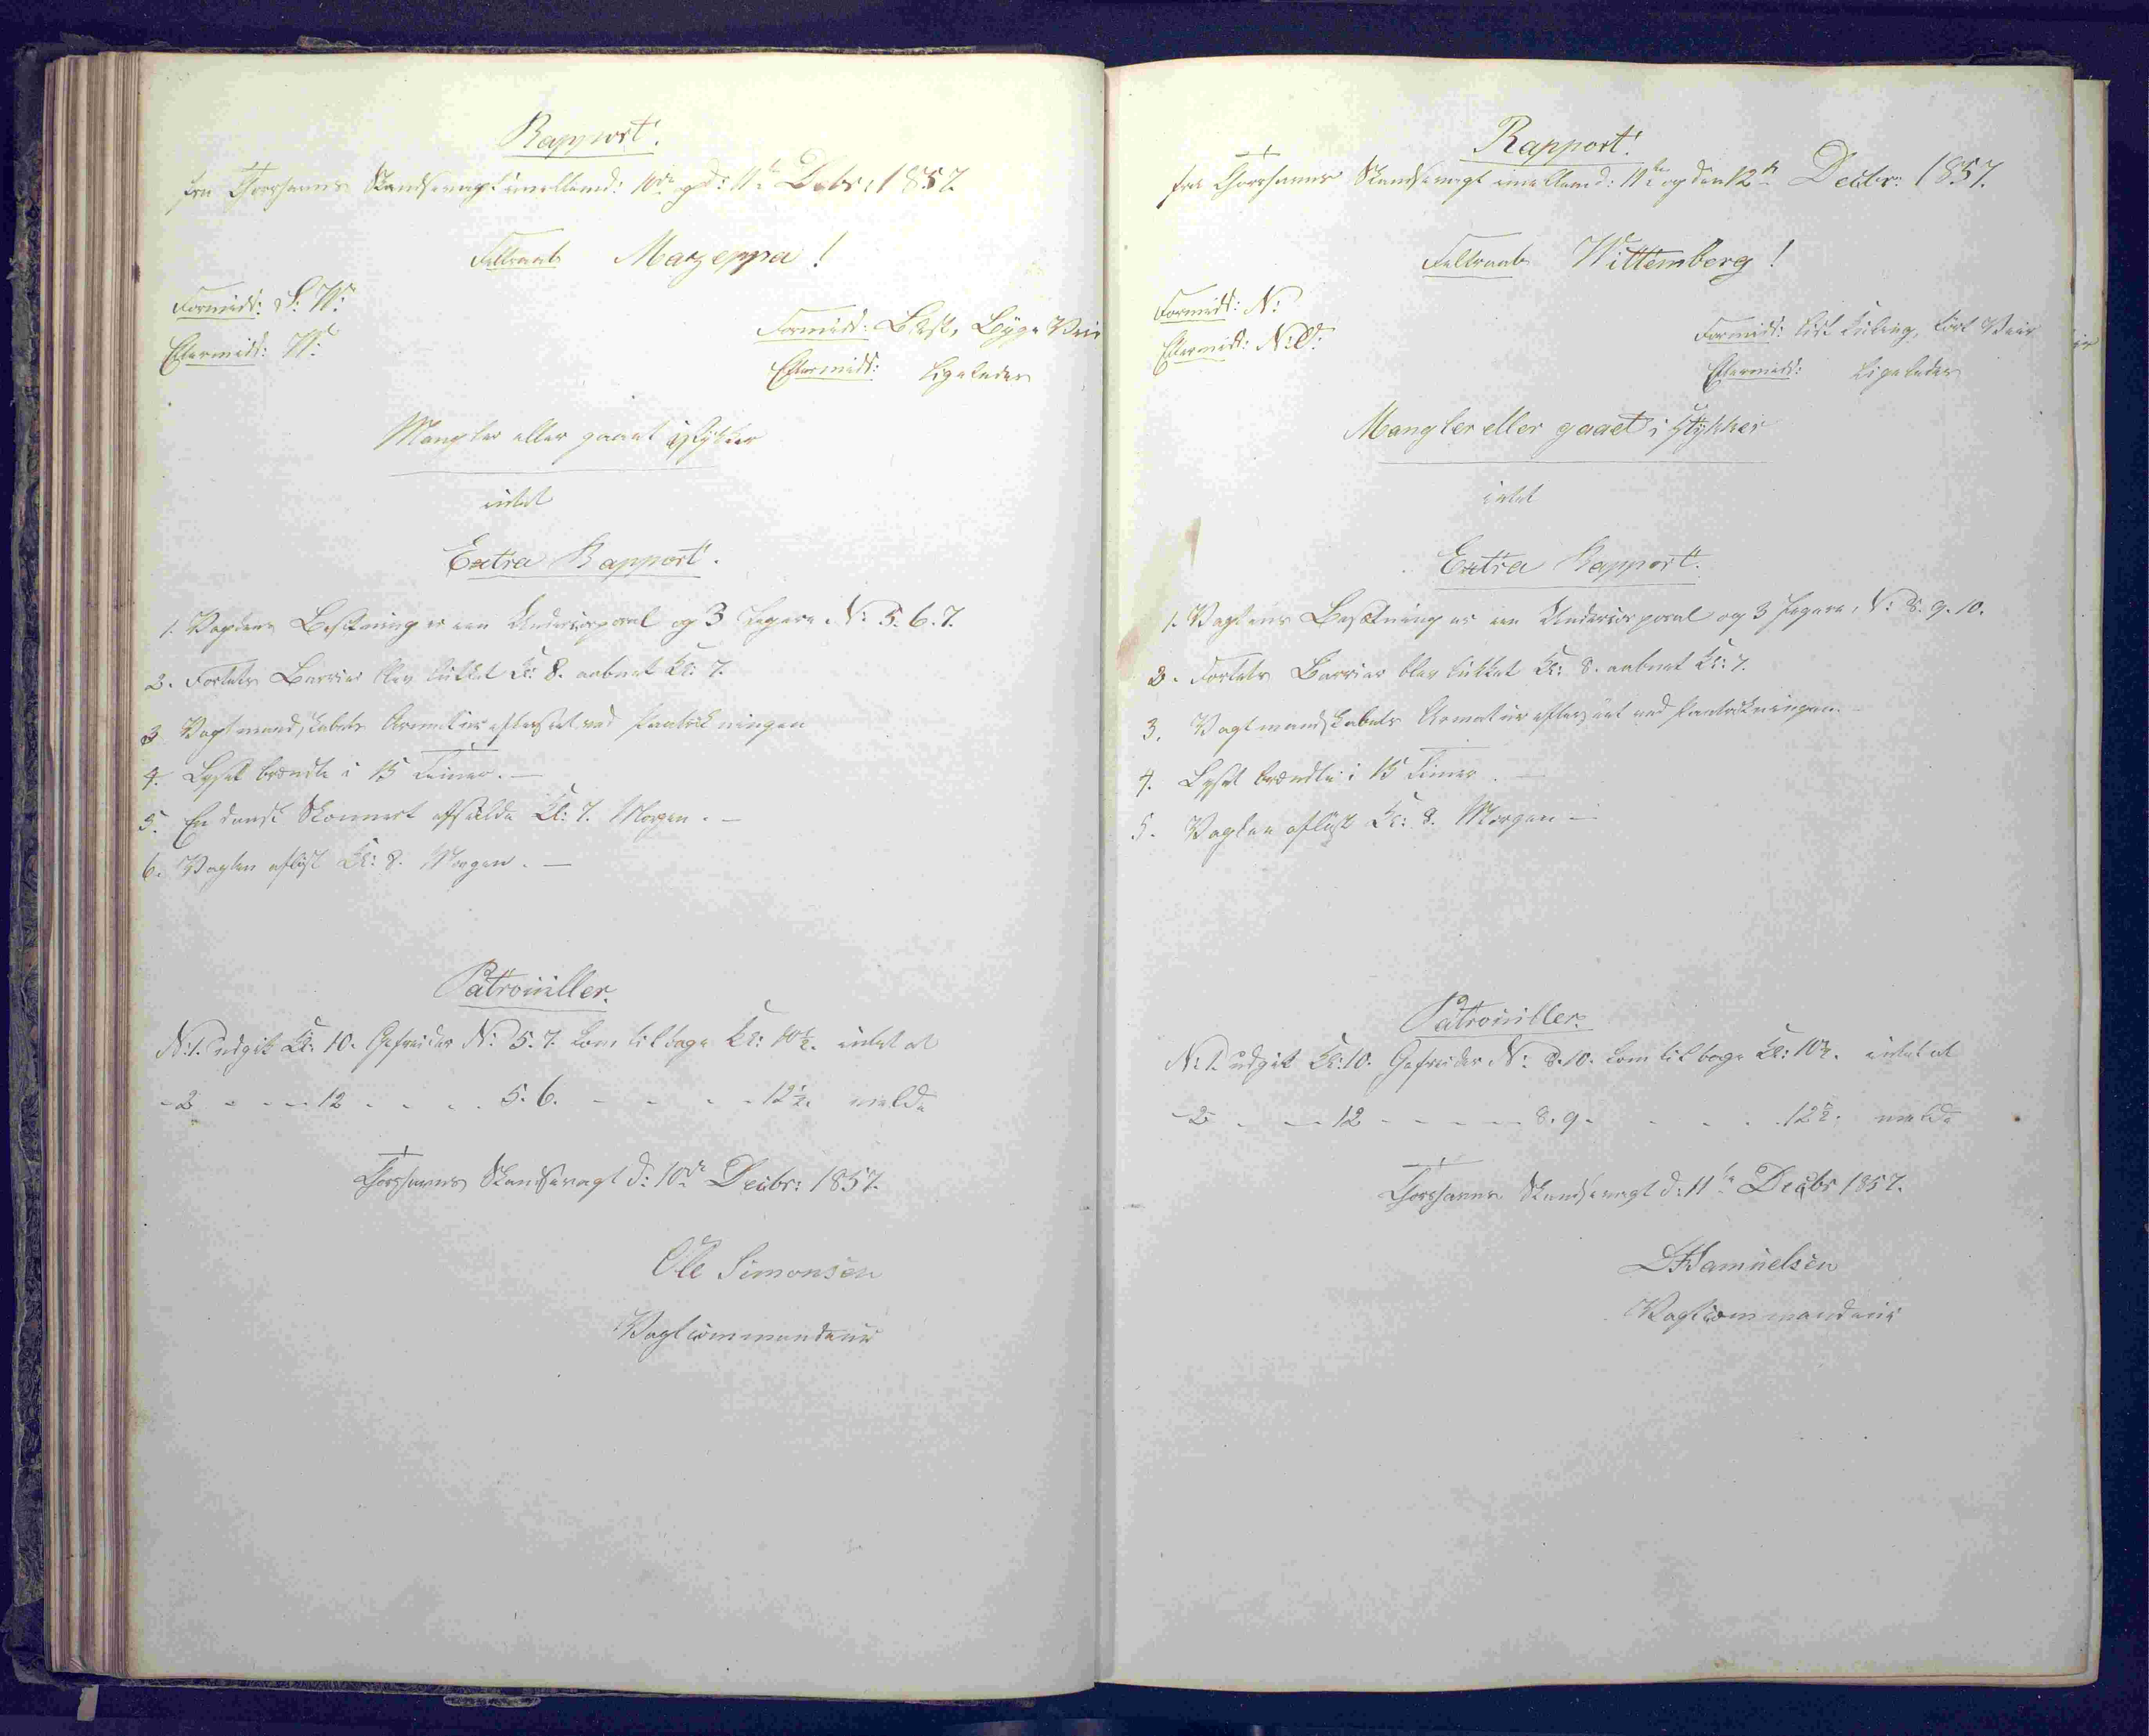 Rapport.
fra Thorshavns Skandsevagt imellem d: 10de og d: 11te Debr: 1857.
Feltraab Mazeppa!
Formidd: S: W:
Eftermidd: W:
Formidd: Blæst, Byge Veir
Eftermidd: ligeledes
Mangler eller gaaet i Stykker
intet
Extra Rapport.
1. Vagtens Besætning er een Undercorporal og 3 Jægere N: 5. 6. 7.
2. Fortets Barrier blev lukket Kl: 8. aabnet Kl: 7.
3 Vagtmandskabets Armatur efterseet ved Paatrækningen
4. Lyset brændte i 15 Timer. —
5. En dansk Skonnert afseilede Kl: 7. Morgen. —
6. Vagten afløst Kl: 8. Morgen. —
Patrouiller.
N: 1. udgik Kl: 10. Gefreider N: 5. 7. kom tilbage Kl: 10½. intet at
- 2 - - - 12 - - - - 5. 6. - - - - 12½. melde
Thorshavns Skandsevagt d: 10de Decbr: 1857.
Ole Simonsen
Vagtcommandeur
Rapport.
fra Thorshavns Skandsevagt imellem d: 11te og den 12te Decbr: 1857.
Feltraab Wittemberg!
Formidd: N:
Eftermidd: N:O:
Formidd: Kuling, Veir
Eftermidd: ligeledes
Mangler eller gaaet i Stykker
intet
Extra Rapport.
1. Vagtens Besætning er een Undercorporal og 3 Jægere, N: 8. 9. 10.
2. Fortets Barrier blev lukket Kl: 8. aabnet Kl: 7.
3. Vagtmandskabets Armatur efterseet ved Paatrækningen. —
4. Lyset brændte i 15 Timer. —
5. Vagten afløst Kl: 8. Morgen —
Patrouiller.
N: 1. udgik Kl: 10. Gefreider N: 8. 10. kom tilbage Kl: 10½. intet at
- 2 - - - 12 - - - - 8. 9. - - - - 12½. melde
Thorshavns Skandsevagt d: 11te Decbr 1857.
Samuelsen
Vagtcommandeur